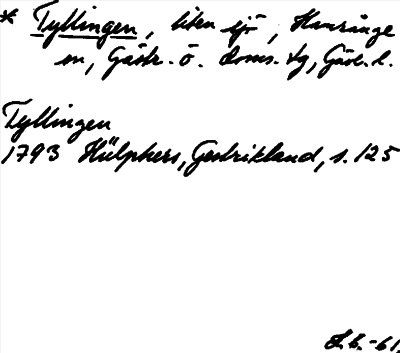 * Tyllingen, liten sjö, Hamrånge
sn, Gästr. ö. doms. tg, Gävl. l.
Tyllingen
1793 Hülphers, Gestrikland, s. 125
-61.